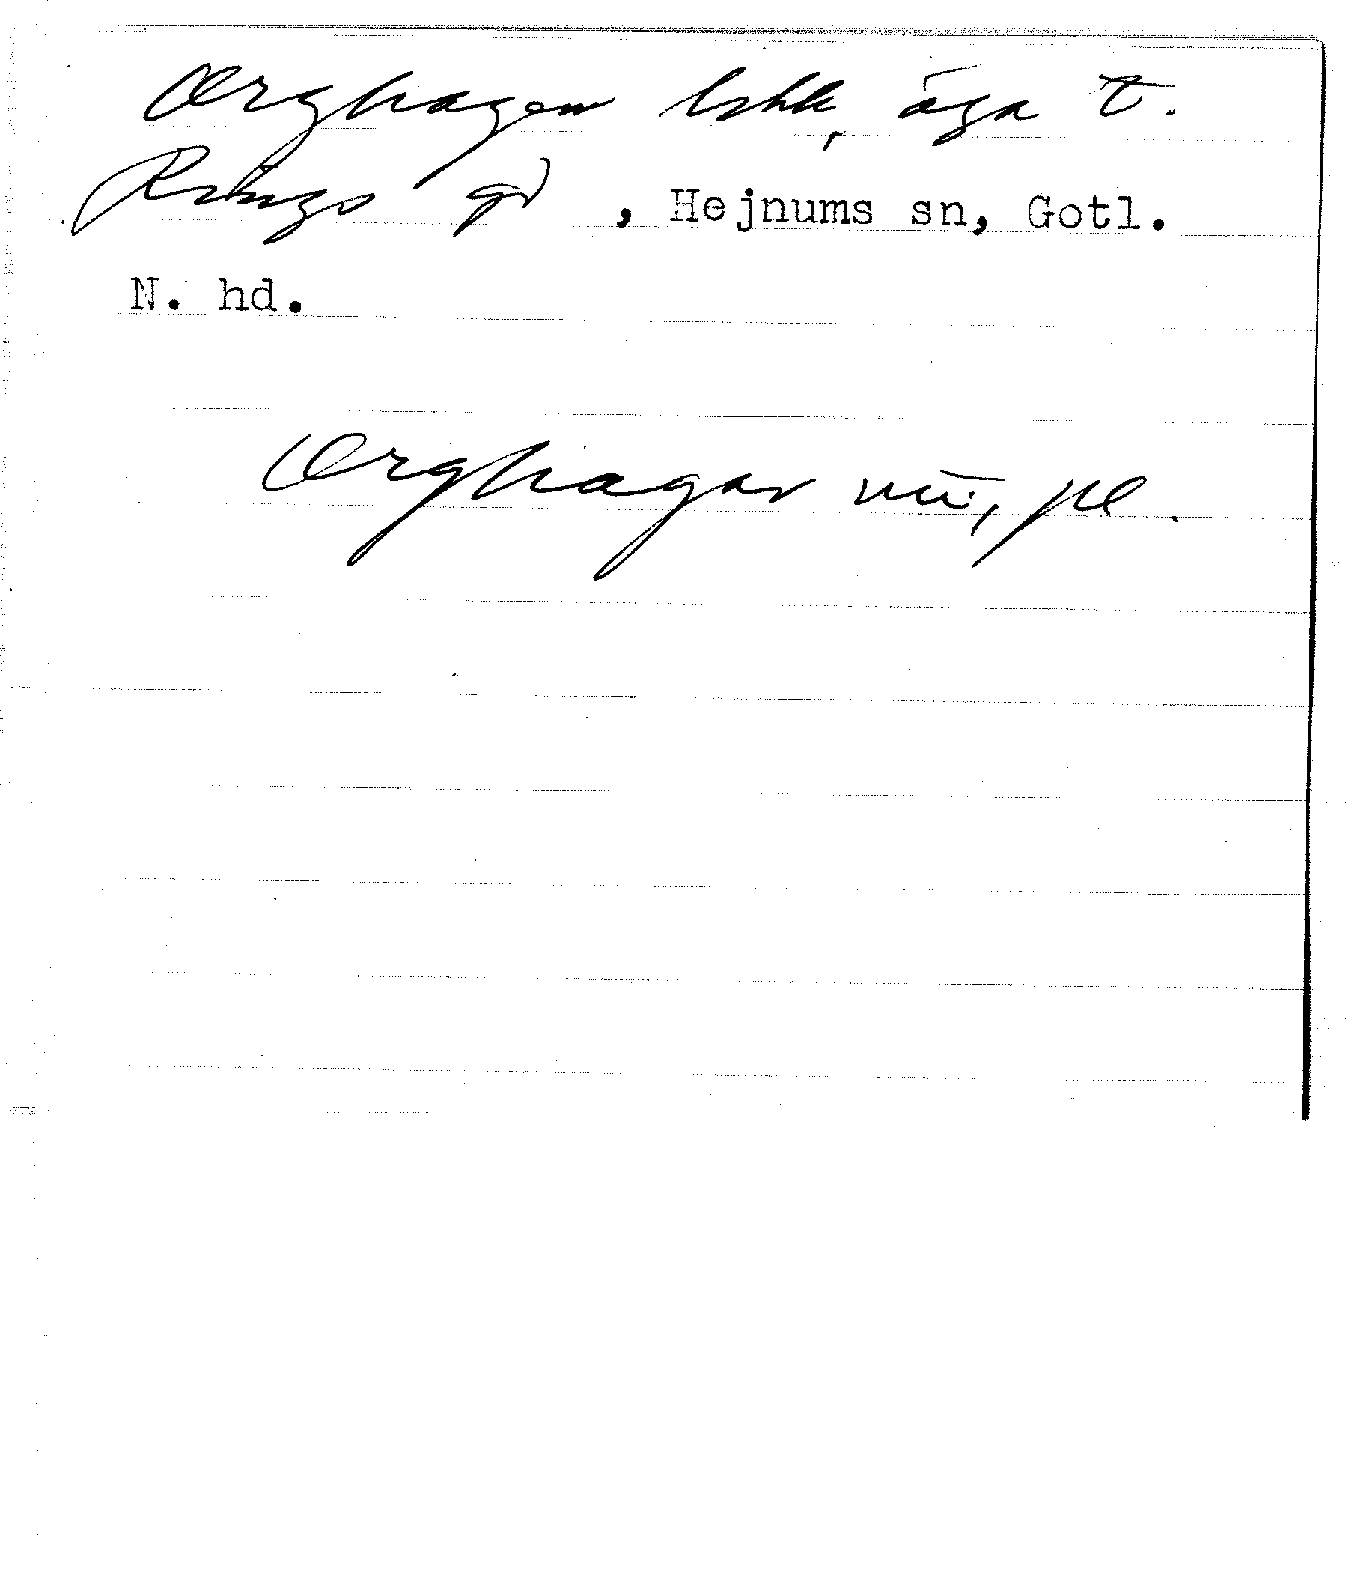 Orghagen bhk, äga t.
Rings gd, Hejnums sn, Gotl.
N. hd.
Orghagar mü, pl.